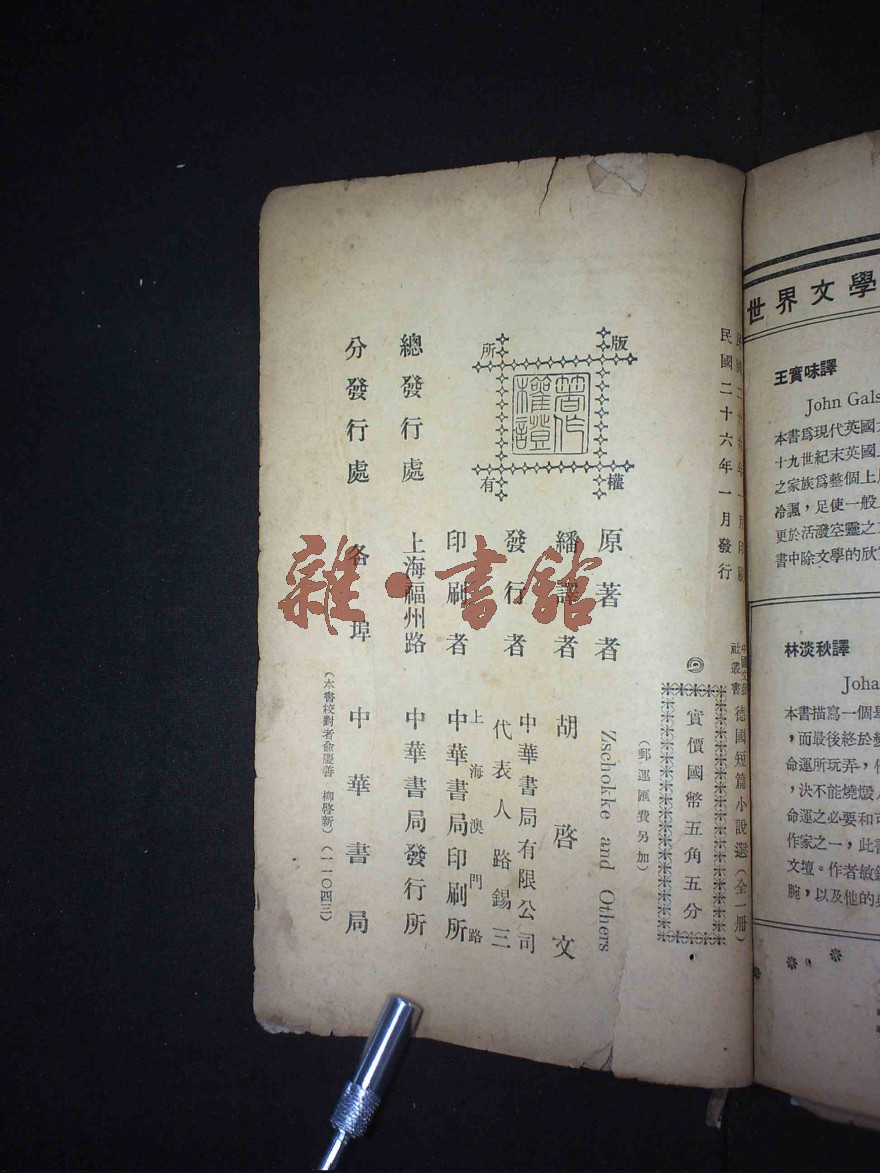 民國二十六年一月印刷
民國二十六年一月發行
中國文藝社叢書
德國短篇小說選(全一册)
◎
實價國幣五角五分
(郵運匯費另加)
原著者 Zschokke and Others
繙譯者 胡啓文
發行者 中華書局有限公司
代表人路錫三
印刷者 上海澳門路
中華書局印刷所
總發行處 上海福州路 中華書局發行所
分發行處 各埠 中華書局
(本書校對者俞慶善 柳啓新)(一一〇四三)
版權所有
著作權證
雜·書館
世界文學
王實味譯
John Gals
本書爲現代英國
十九世紀末英國
之家族爲整個上
冷諷,足使一般
更於活潑空靈之
書中除文學的欣
林淡秋譯
Joha
本書描寫一個
,而最後終於
命運所玩弄,
,決不能燒燬
命運之必要和可
作家之一,此
文壇。作者敏
腕,以及他的